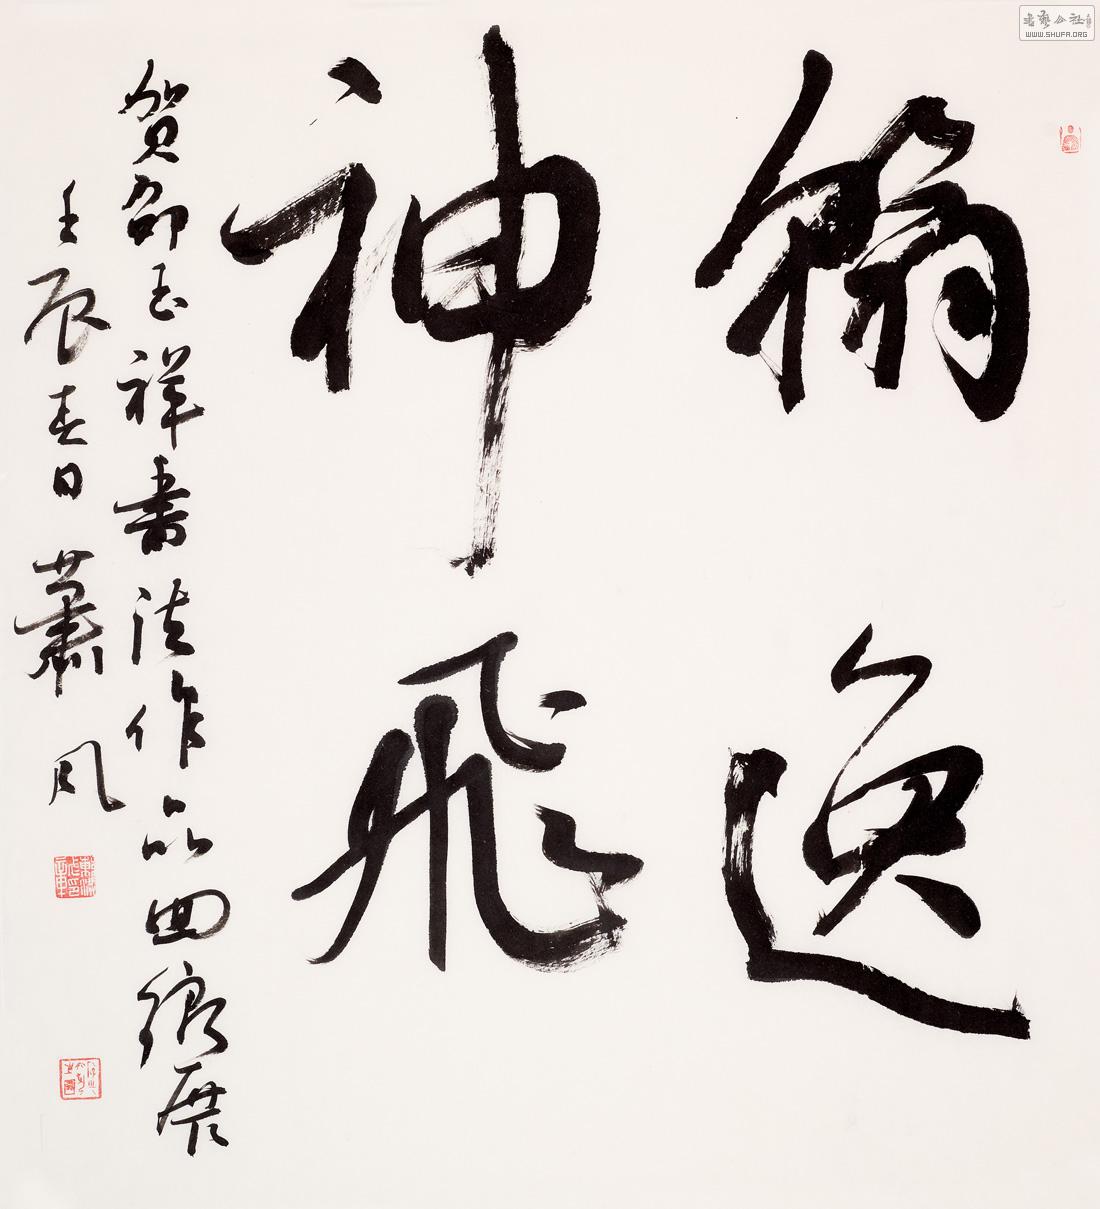 翰逸
神飛
贺邵玉祥書法作品回鄉展
壬辰春日 蕭风
書艺公社
WWW.SHUFA.ORG